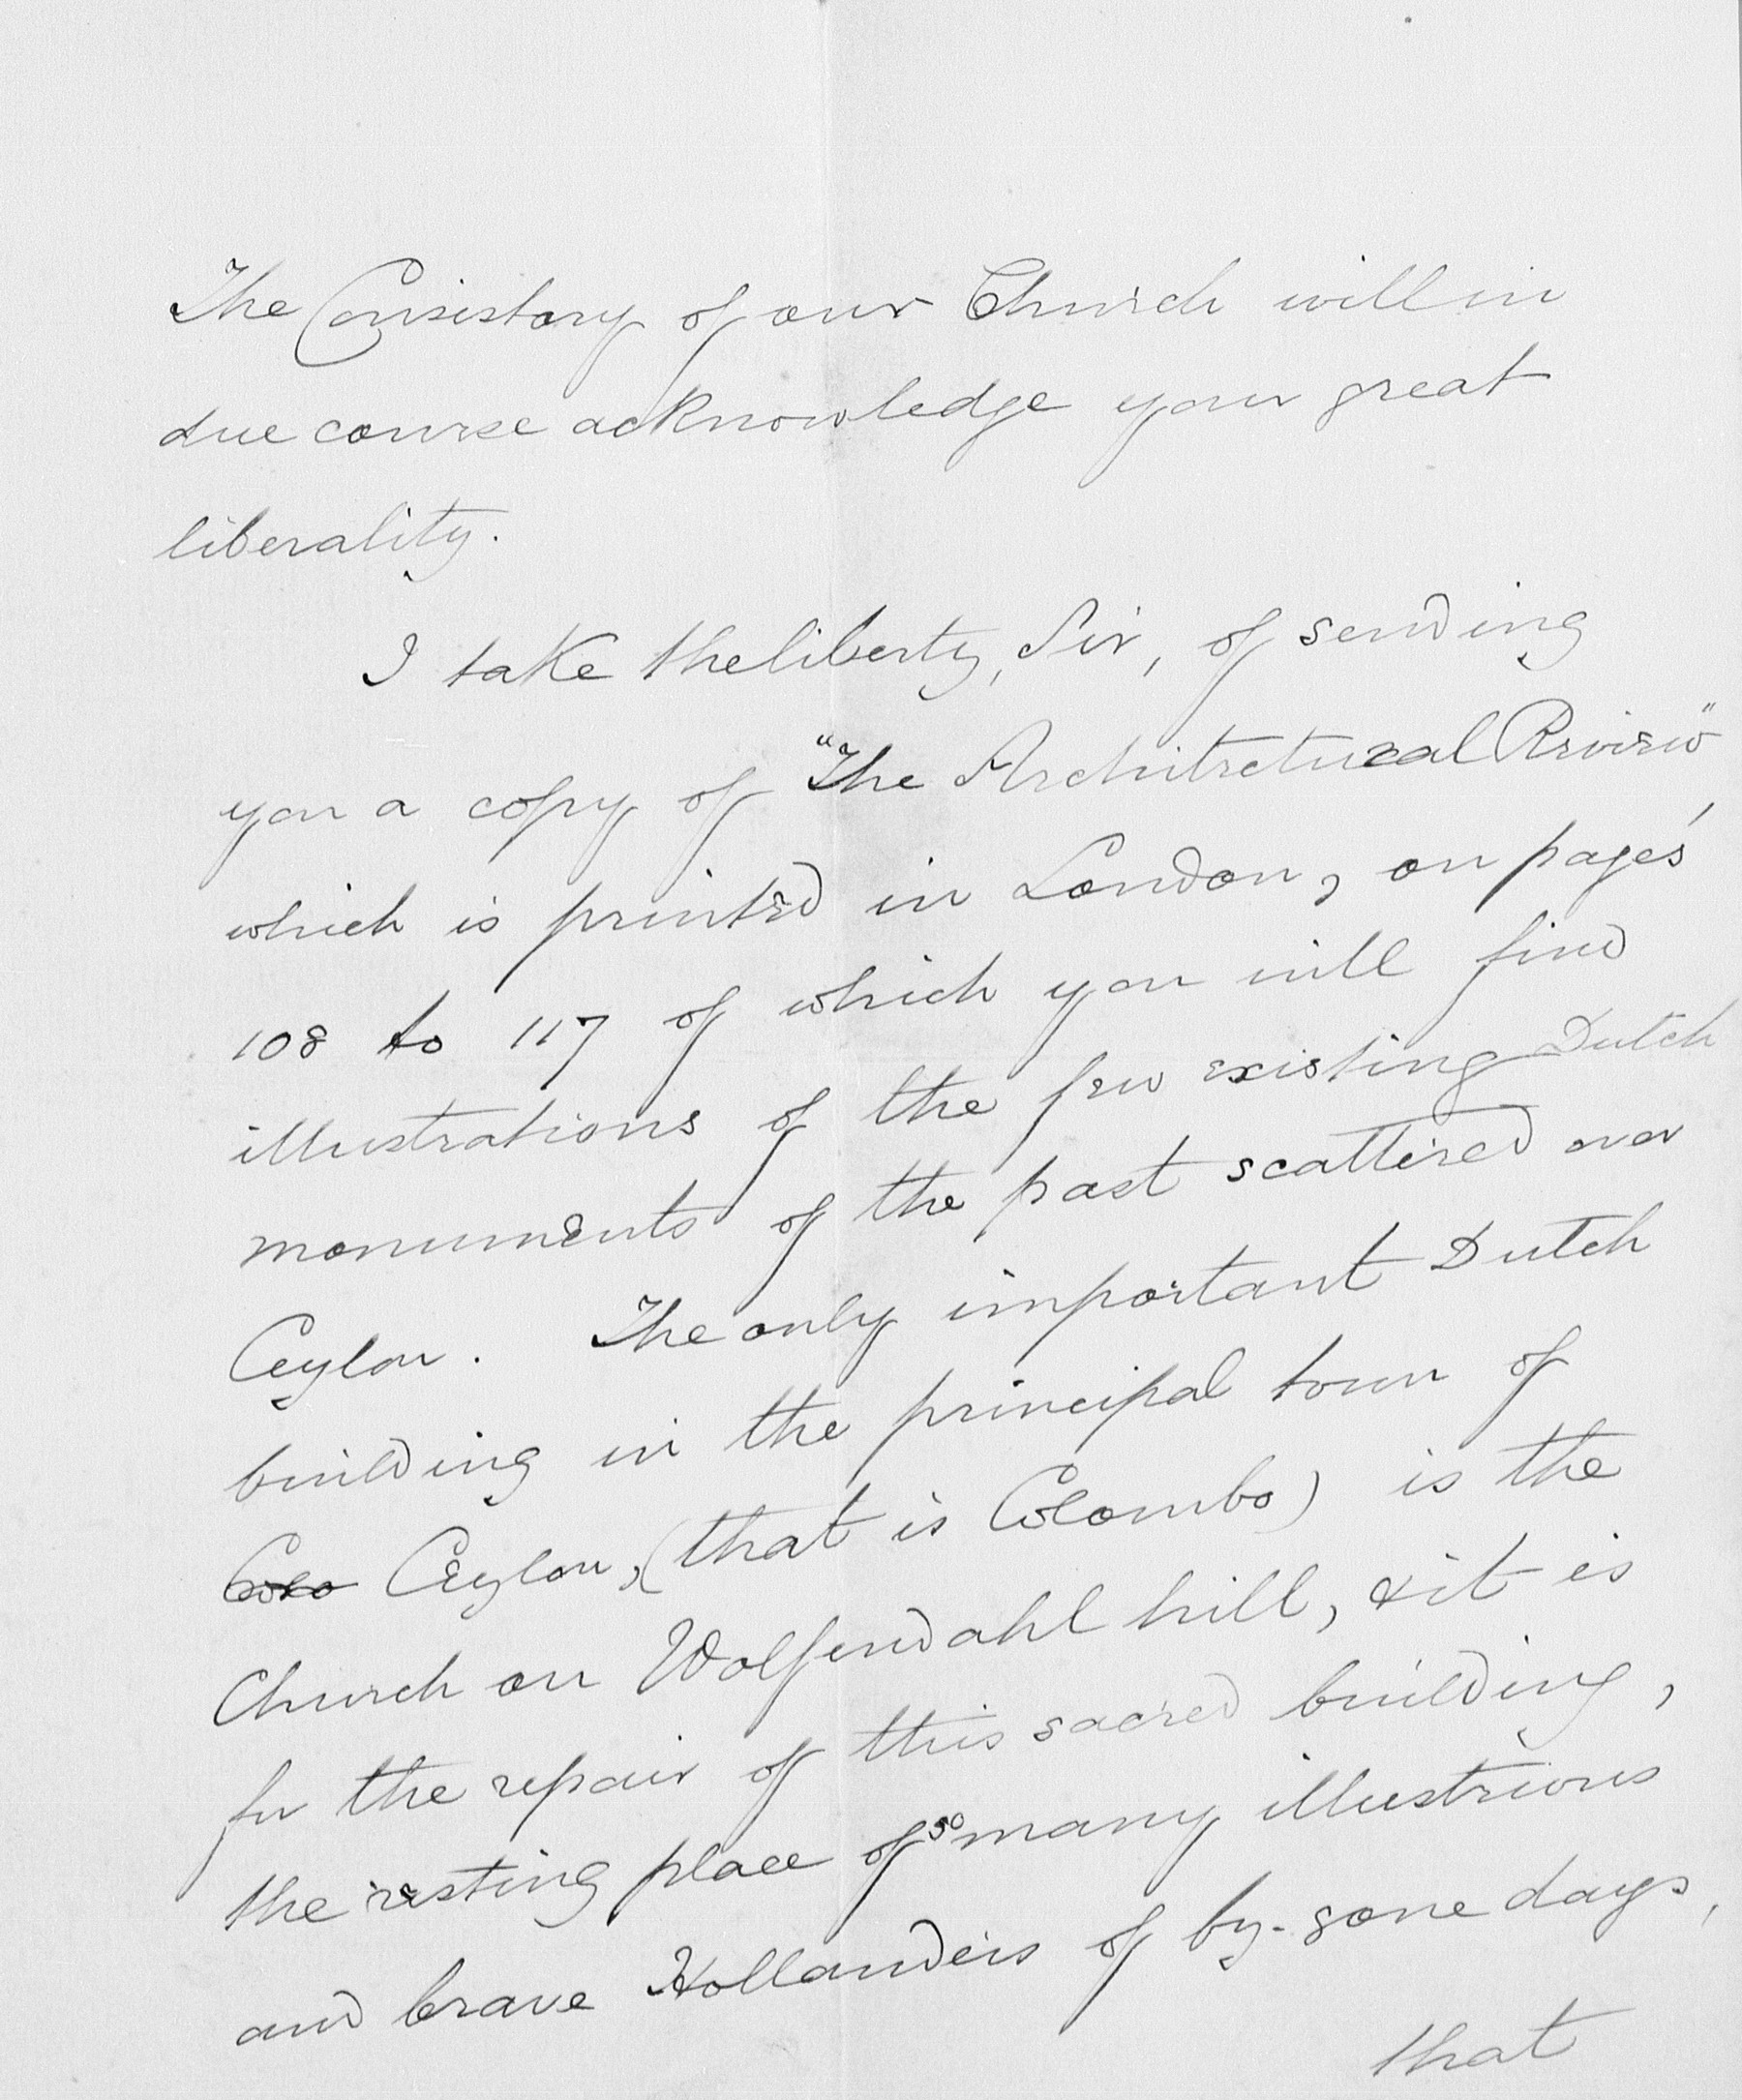 The Consistory of our Church will in
due course acknowledge your great
liberality.
I take the liberty, Sir, of sending
you a copy of "The Architectural Review"
which is printed in London, on pages
108 to 117 of which you will find
illustrations of the few existing Dutch
monuments of the past scattered over
Ceylon. The only important Dutch
building in the principal town of
Colo Ceylon, (that is Colombo) is the
Church on Wolfendahl hill, & it is
for the repair of this sacred building,
the resting place of so many illustrious
and brave Hollanders of by-gone days,
that